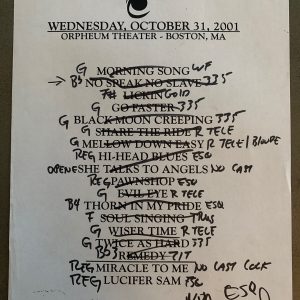 WEDNESDAY, OCTOBER 31, 2001
ORPHEUM THEATER - BOSTON, MA
G MORNING SONG
→ B3 NO SPEAK NO SLAVE 335
F# LICKING
G GO FASTER 335
G BLACK MOON CREEPING 335
G SHARE THE RIDE R TELE
G MELLOW DOWN EASY R TELE/
REG HI-HEAD BLUES ESQ
OPEN SHE TALKS TO ANGELS NO CAST
REG PAWNSHOP ESQ
G EVIL EYE R TELE
B4 THORN IN MY PRIDE ESQ
F SOUL SINGING
G WISER TIME R TELE
G TWICE AS HARD 335
B3 REMEDY 717
REG MIRACLE TO ME NO CAST
REG LUCIFER SAM ESQ
ESQ